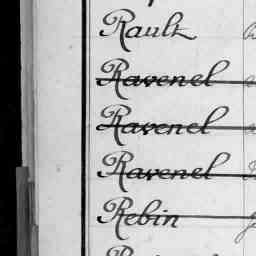 Rault
Ravenel
Ravenel
Ravenel
Rebin